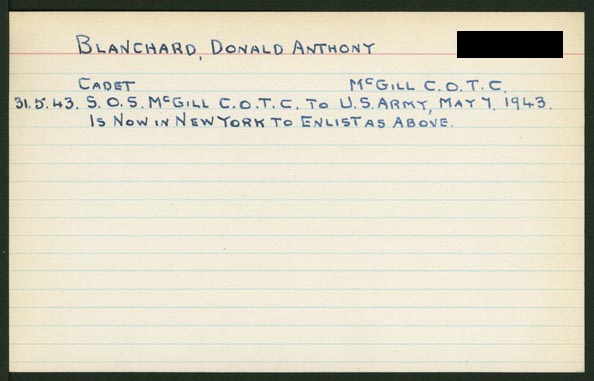 BLANCHARD, DONALD ANTHONY
CADET McGILL C.O.T.C.
31.5.43. S.O.S. McGILL C.O.T.C. TO U.S. ARMY, MAY 7, 1943.
IS NOW IN NEW YORK TO ENLIST AS ABOVE.